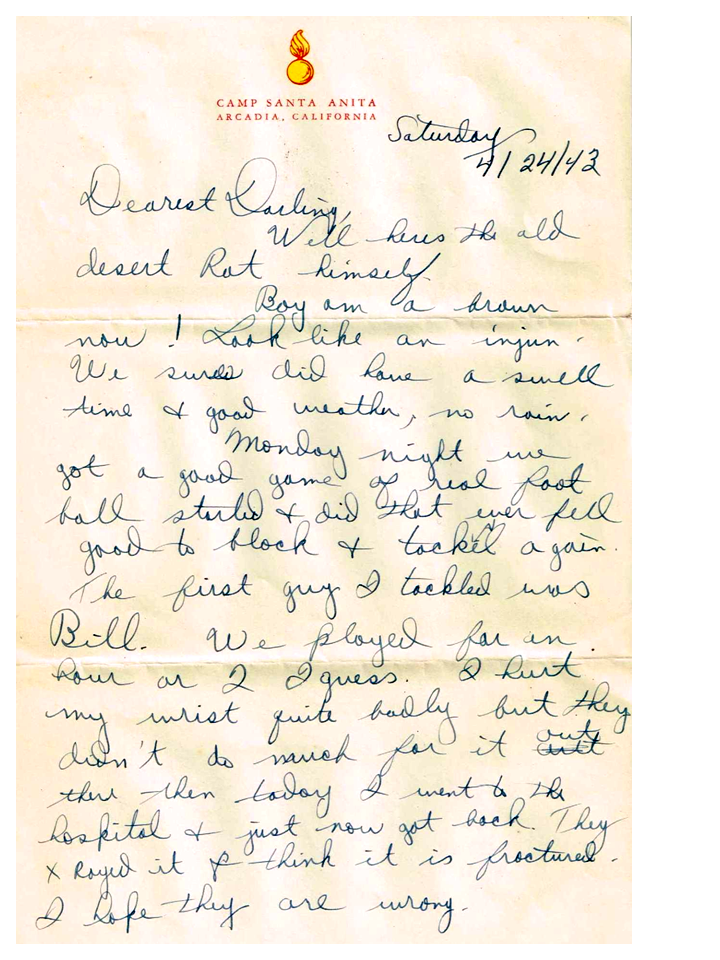 CAMP SANTA ANITA
ARCADIA, CALIFORNIA
Saturday
4/24/43
Dearest Darling,
Well heres the old
desert Rat himself.
Boy am a brown
now! Look like an injun.
We sure did have a swell
time & good weather, no rain.
Monday night we
got a good game of real foot
ball started & did that ever fell
good to block & tackel again.
The first guy I tackled was
Bill. We played for an
hour or 2 I guess. I hurt
my wrist quite badly but they
didn't do much for it out
there then today I went to the
hospital & just now got back. They
x Rayed it & think it is fractured.
I hope they are wrong.